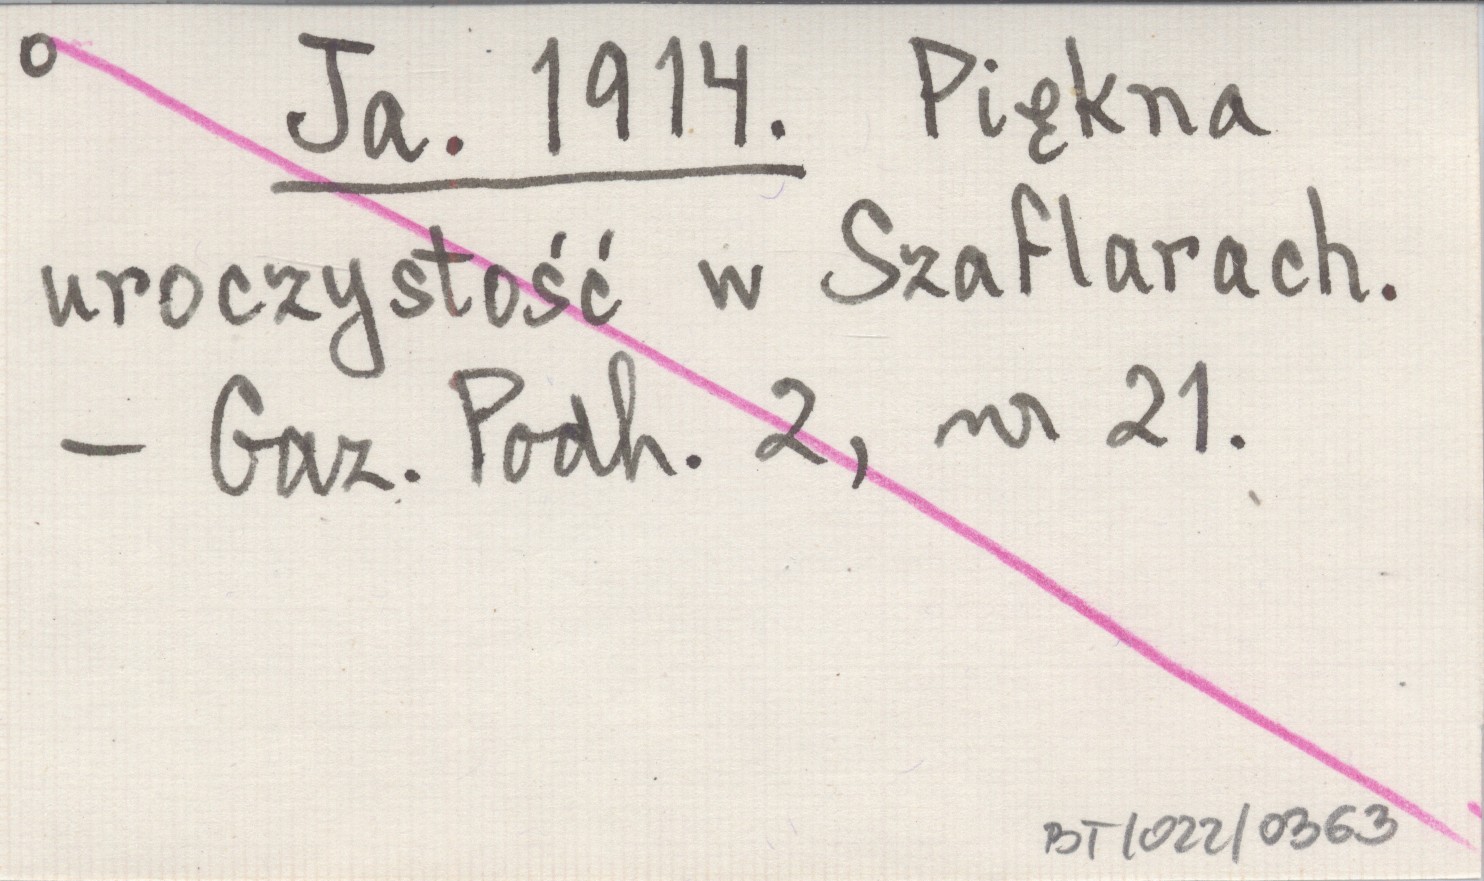 o Ja. 1914. Piękna
uroczystość w Szaflarach.
— Gaz. Podh. 2, nr 21.
BT/022/0363